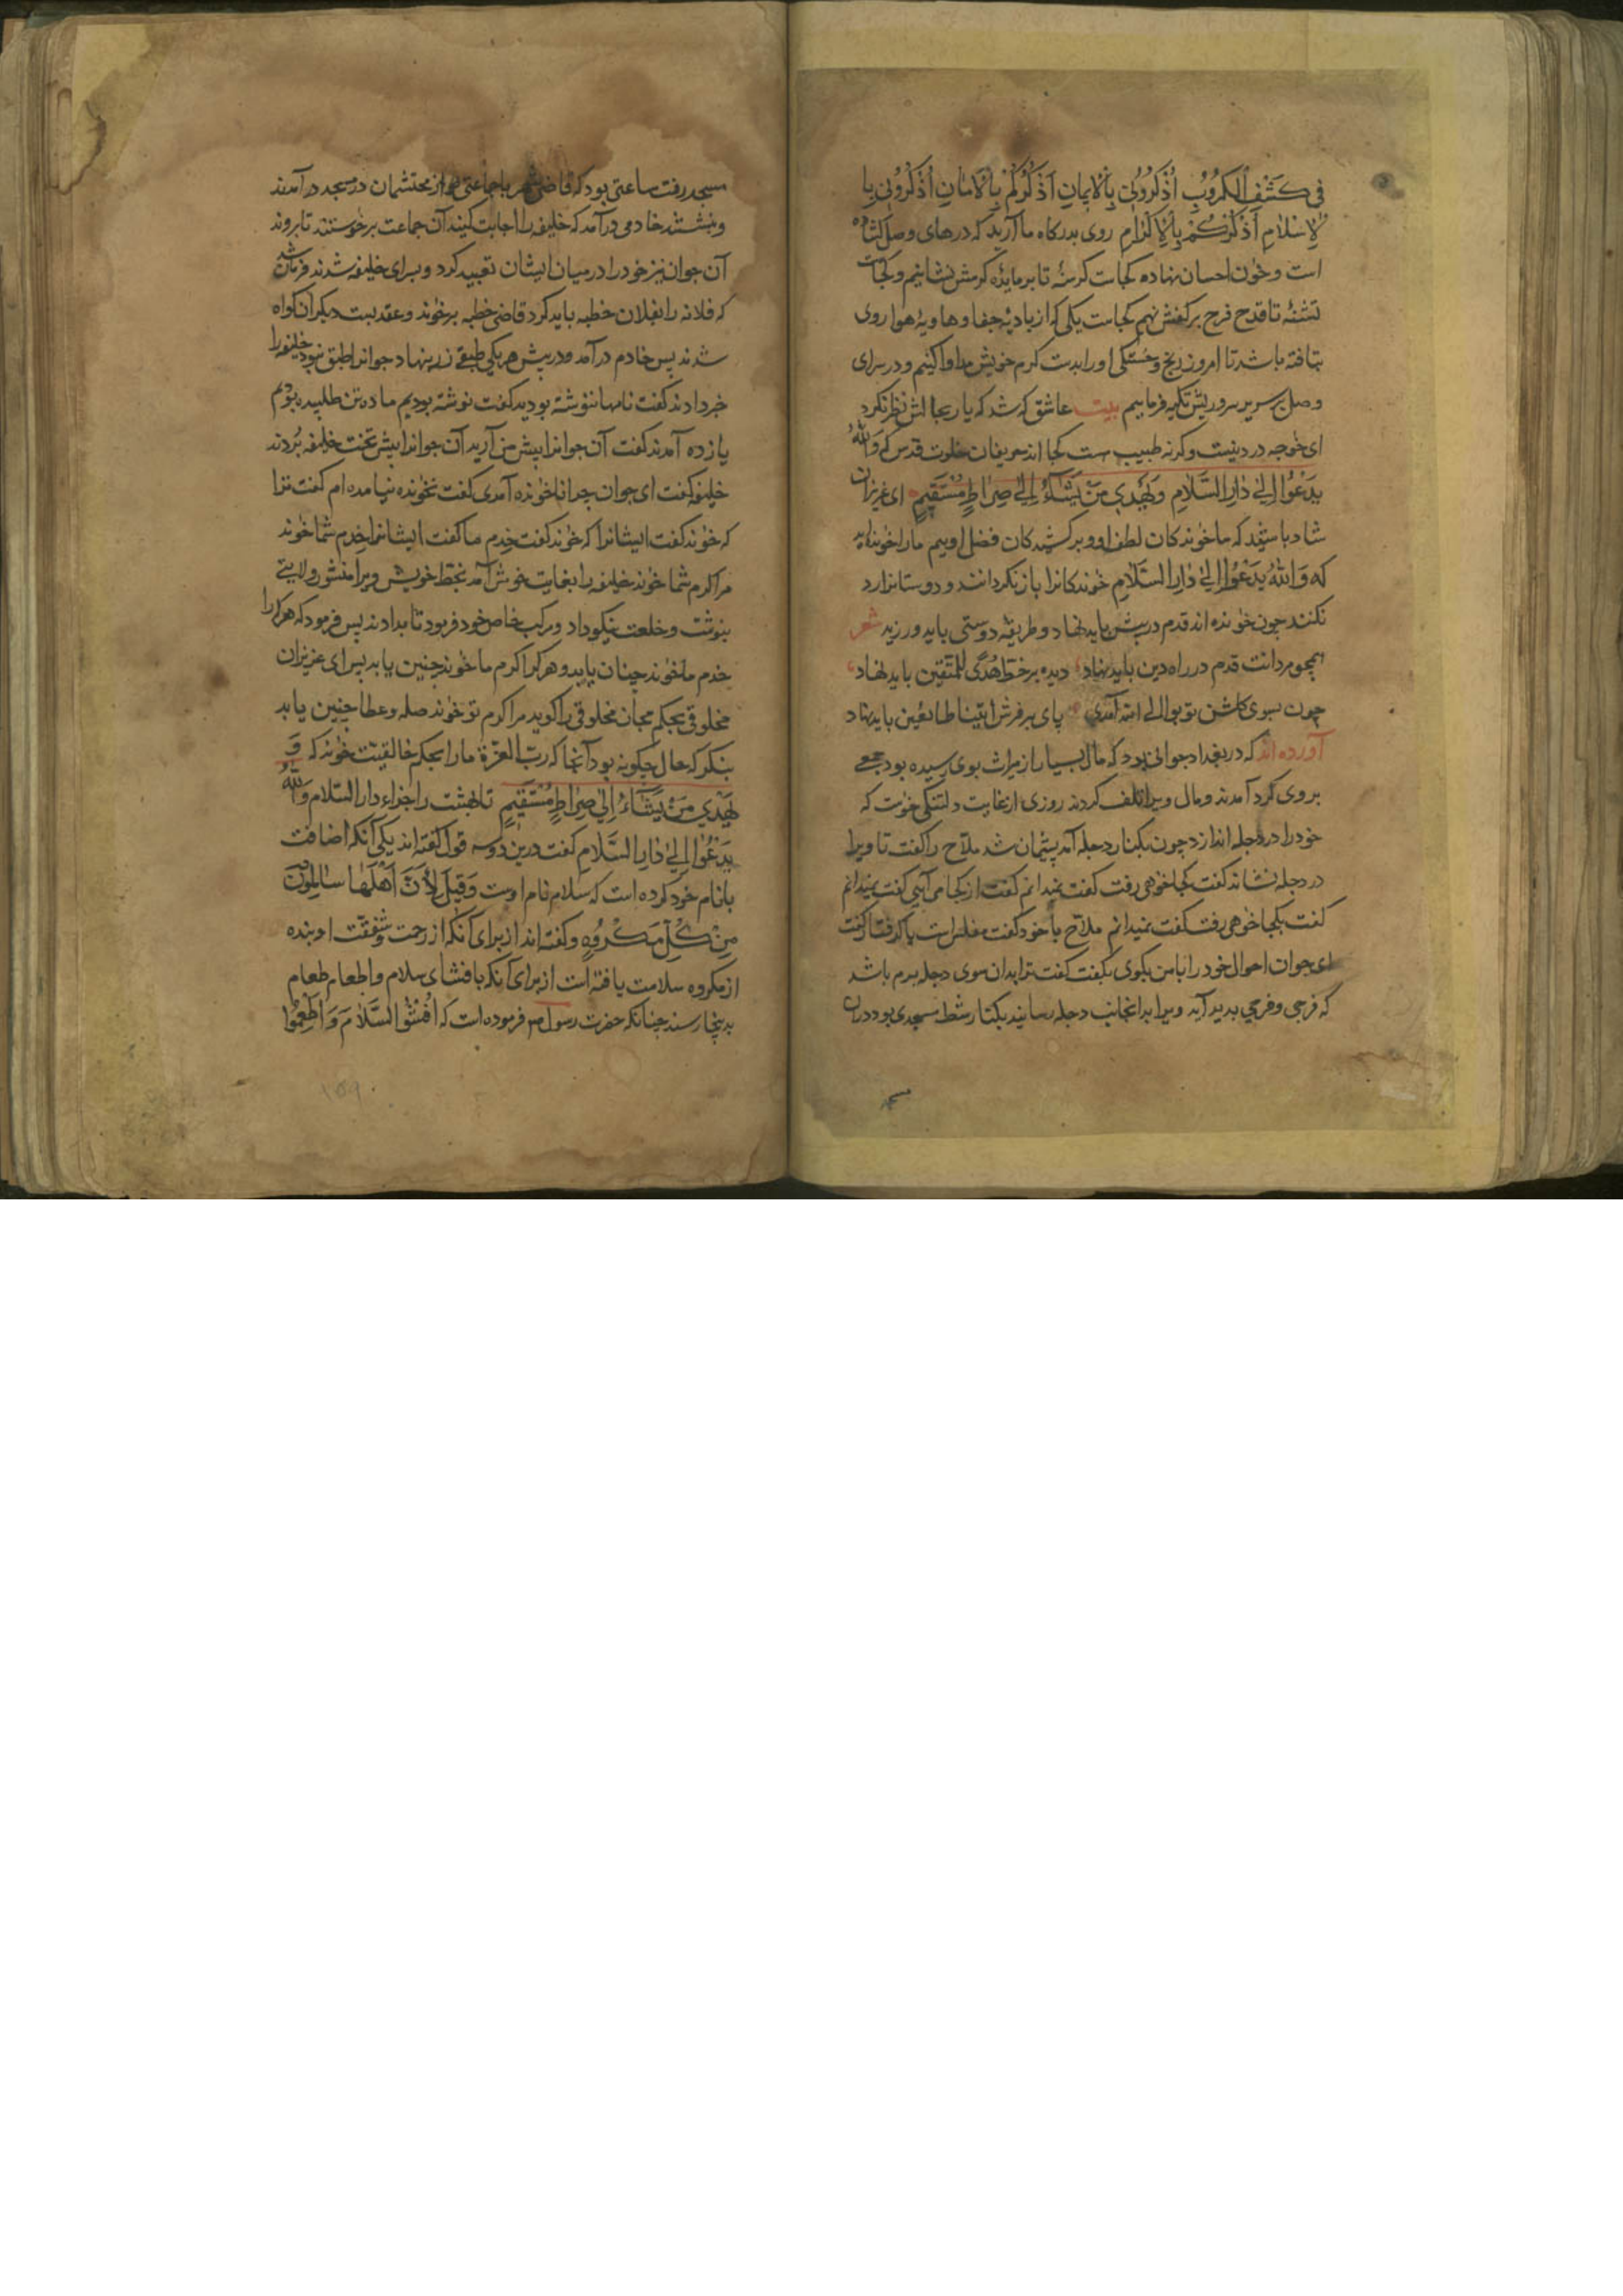 فی كَشْفِ الْكُرُوبِ اُذْكُرُونِی بِالْاِیمَانِ اَذْكُرْكُمْ بِالْاَمَانِ اُذْكُرُونِی بِا
لْاِسْلَامِ اَذْكُرْكُمْ بِالْاِكْرَامِ روی بدركاه ما آرید كه درهای وصل كشاده
است و خوان احسان نهاده كجاست كرسنهٔ تا بر مایدهٔ كرمش نشانیم و كجاست
تشنهٔ تا قدح فرح بر كفش نهم كجاست یكی كه از بادیهٔ جفا و هاویهٔ هوا روی
بتافته باشد تا امروز رنج و خستكی او را بدست كرم خویش مداوا كنیم و در سرای
وصل بر سریر سروریش تكیه فرماییم بیت عاشق كه شد كه یار بحالش نظر نكرد
ای خواجه درد نیست وكرنه طبیب هست كجا اند حریفان خلوت قدس كه وَاللهُ
یَدْعُوا اِلیٰ دَارِ السَّلَامِ وَیَهْدِی مَنْ یَشَاءُ اِلیٰ صِرَاطٍ مُسْتَقِیمٍ ای عزیزان
شاد باشید كه ما خواندكان لطف او و بركشیدكان فضل اوییم ما را خوانده اند
كه وَاللهُ یَدْعُوا اِلیٰ دَارِ السَّلَامِ خواندكانرا باز نكردانند و دوستانرا رد
نكنند چون خوانده اند قدم در پیش باید نهاد و طریقهٔ دوستی باید ورزید شعر
همچو مردانت قدم در راه دین باید نهاد دیده بر خط هُدًی لِلْمُتَّقِینَ باید نهاد
چون بسوی كلشن توبوا الی الله آمدی پای بر فرش اتینا طایعین باید نهاد
آورده اند كه در بغداد جوانی بود كه مال بسیار از میراث بوی رسیده بود جمعی
بر وی كرد آمدند و مال ویرا تلف كردند روزی از غایت دلتنكی خواست كه
خود را در دجله اندازد چون بكنار دجله آمد پشیمان شد ملاح را كفت تا ویرا
در دجله نشاند كفت كجا خواهی رفت كفت نمیدانم كفت از كجا می آیی كفت نمیدانم
كفت بكجا خواهی رفت كفت نمیدانم ملاح با خود كفت مفلس است یا كرفتار كفت
ای جوان احوال خود را با من بكوی بكفت كفت ترا بدان سوی دجله برم باشد
كه فرجی و فرحی پدید آید ویرا بدانجانب دجله رسانید بكنار شط مسجدی بود در ان
مسجد
مسجد رفت ساعتی بود كه قاضی شهر با جماعتی از محتشمان در مسجد در آمدند
و بنشستند خادمی در آمد كه خلیفه را اجابت كنید آن جماعت برخواستند تا بروند
آن جوان نیز خود را در میان ایشان تعبیه كرد و بسرای خلیفه شدند فرمان شد
كه فلانه را بفلان خطبه باید كرد قاضی خطبه برخواند و عقد بست دیكران كواه
شدند پس خادم در آمد و در پیش هر یكی طبقی زر بنهاد جوانرا طبق نبود خلیفه را
خبر دادند كفت نامها ننوشته بودید كفت نوشته بودیم ما ده تن طلبیده بودیم
یازده آمدند كفت آن جوانرا پیش من آرید آن جوانرا پیش تخت خلیفه بردند
خلیفه كفت ای جوان چرا ناخوانده آمدی كفت نخوانده نیامده ام كفت ترا
كه خواند كفت ایشانرا كه خواند كفت خدم ما كفت ایشانرا خدم شما خواند
مرا كرم شما خواند خلیفه را بغایت خوش آمد بخط خویش ویرا منشور ولایتی
بنوشت و خلعت نیكو داد و مركب خاص خود فرمود تا بدادند پس فرمود كه هر كرا
خدم ما خواند چنان یابد و هر كرا كرم ما خواند چنین یابد پس ای عزیزان
مخلوقی بحكم مجاز مخلوقی را كوید مرا كرم تو خواند صله و عطا چنین یابد
بنكر كه حال چكونه بود آنجا كه ربّ العزة ما را بحكم خالقیت خواند كه وَ
یَهْدِی مَنْ یَشَاءُ اِلیٰ صِرَاطٍ مُسْتَقِیمٍ تا بهشت را جزاء دار السلام وَاللهُ
یَدْعُوا اِلیٰ دَارِ السَّلَامِ كفت درین دو سه قول كفته اند یكی آنكه اضافت
با نام خود كرده است كه سلام نام اوست وَقِیلَ لِاَنَّ اَهْلَهَا سَالِمُونَ
مِنْ كُلِّ مَكْرُوهٍ و كفته اند از برای آنكه از رحمت و شفقت او بنده
از مكروه سلامت یافته است از برای آنكه بافشای سلام و اطعام طعام
بدینجا رسند چنانكه حضرت رسول ص فرموده است كه اُفْشُوا السَّلَامَ وَاَطْعِمُوا
۱۵۹